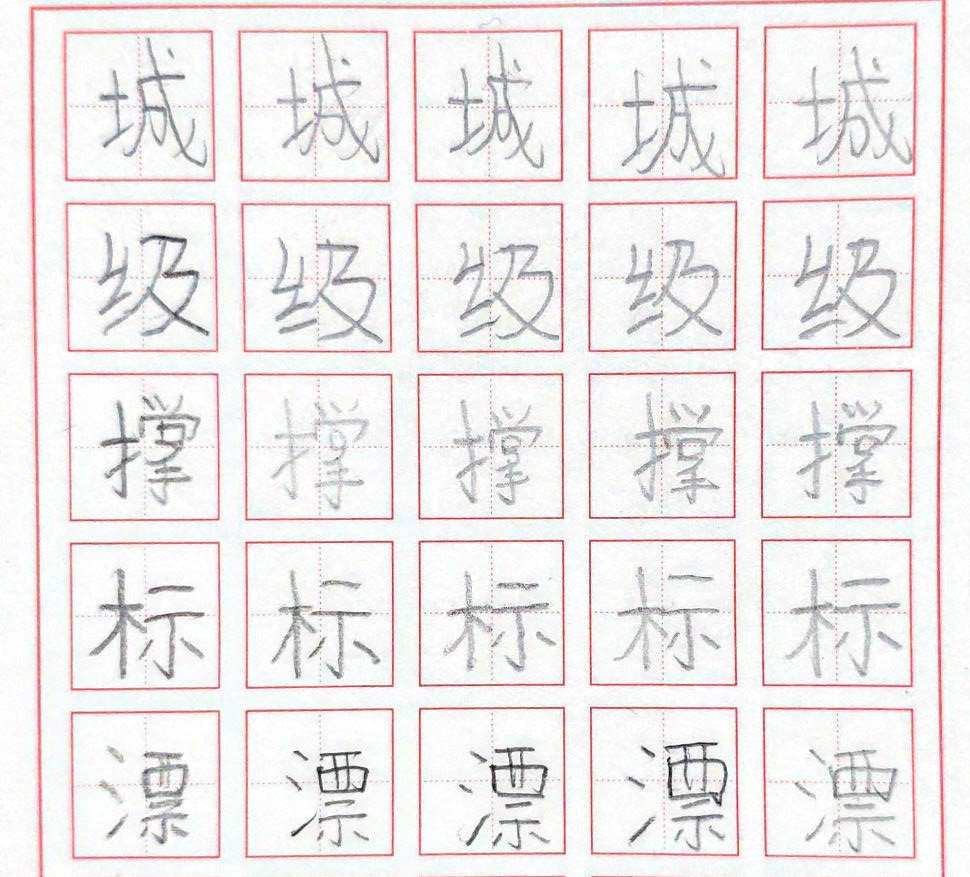 城城城城城
级级级级级
撑撑撑撑撑
标标标标标
漂漂漂漂漂